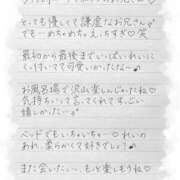 とっても優しくて謙虚なお兄さん
でもーめちゃめちゃえっちすぎ♡笑
最初から最後まで いっぱいれいに
くっ付いてて可愛いかったな〜♪
お風呂場で沢山楽しんじゃったね♡
気持ちいって言ってくれてすっごい
嬉しかった〜♪
ベッドでもいちゃいちゃ♡れいの
あれ、柔らかくて好きでしょ？♪
また会いたい〜、もっと楽もうね♡